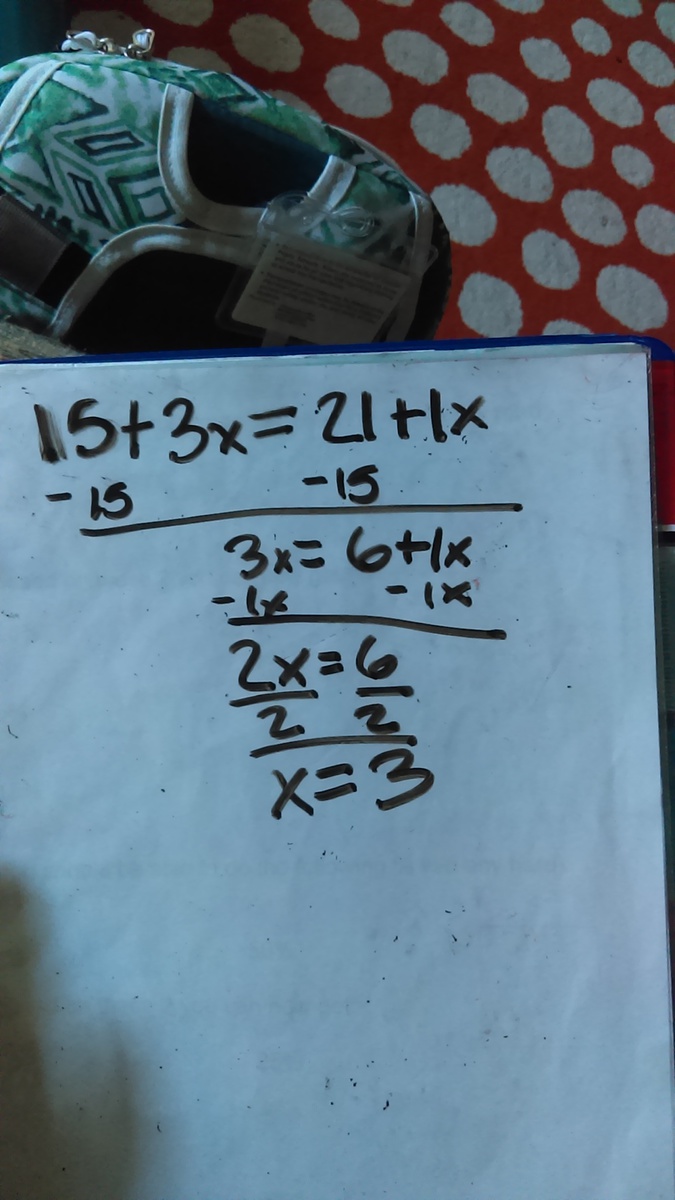 15+3x=21+1x
-15 -15
3x=6+1x
-1x -1x
2x=6
2 2
x=3